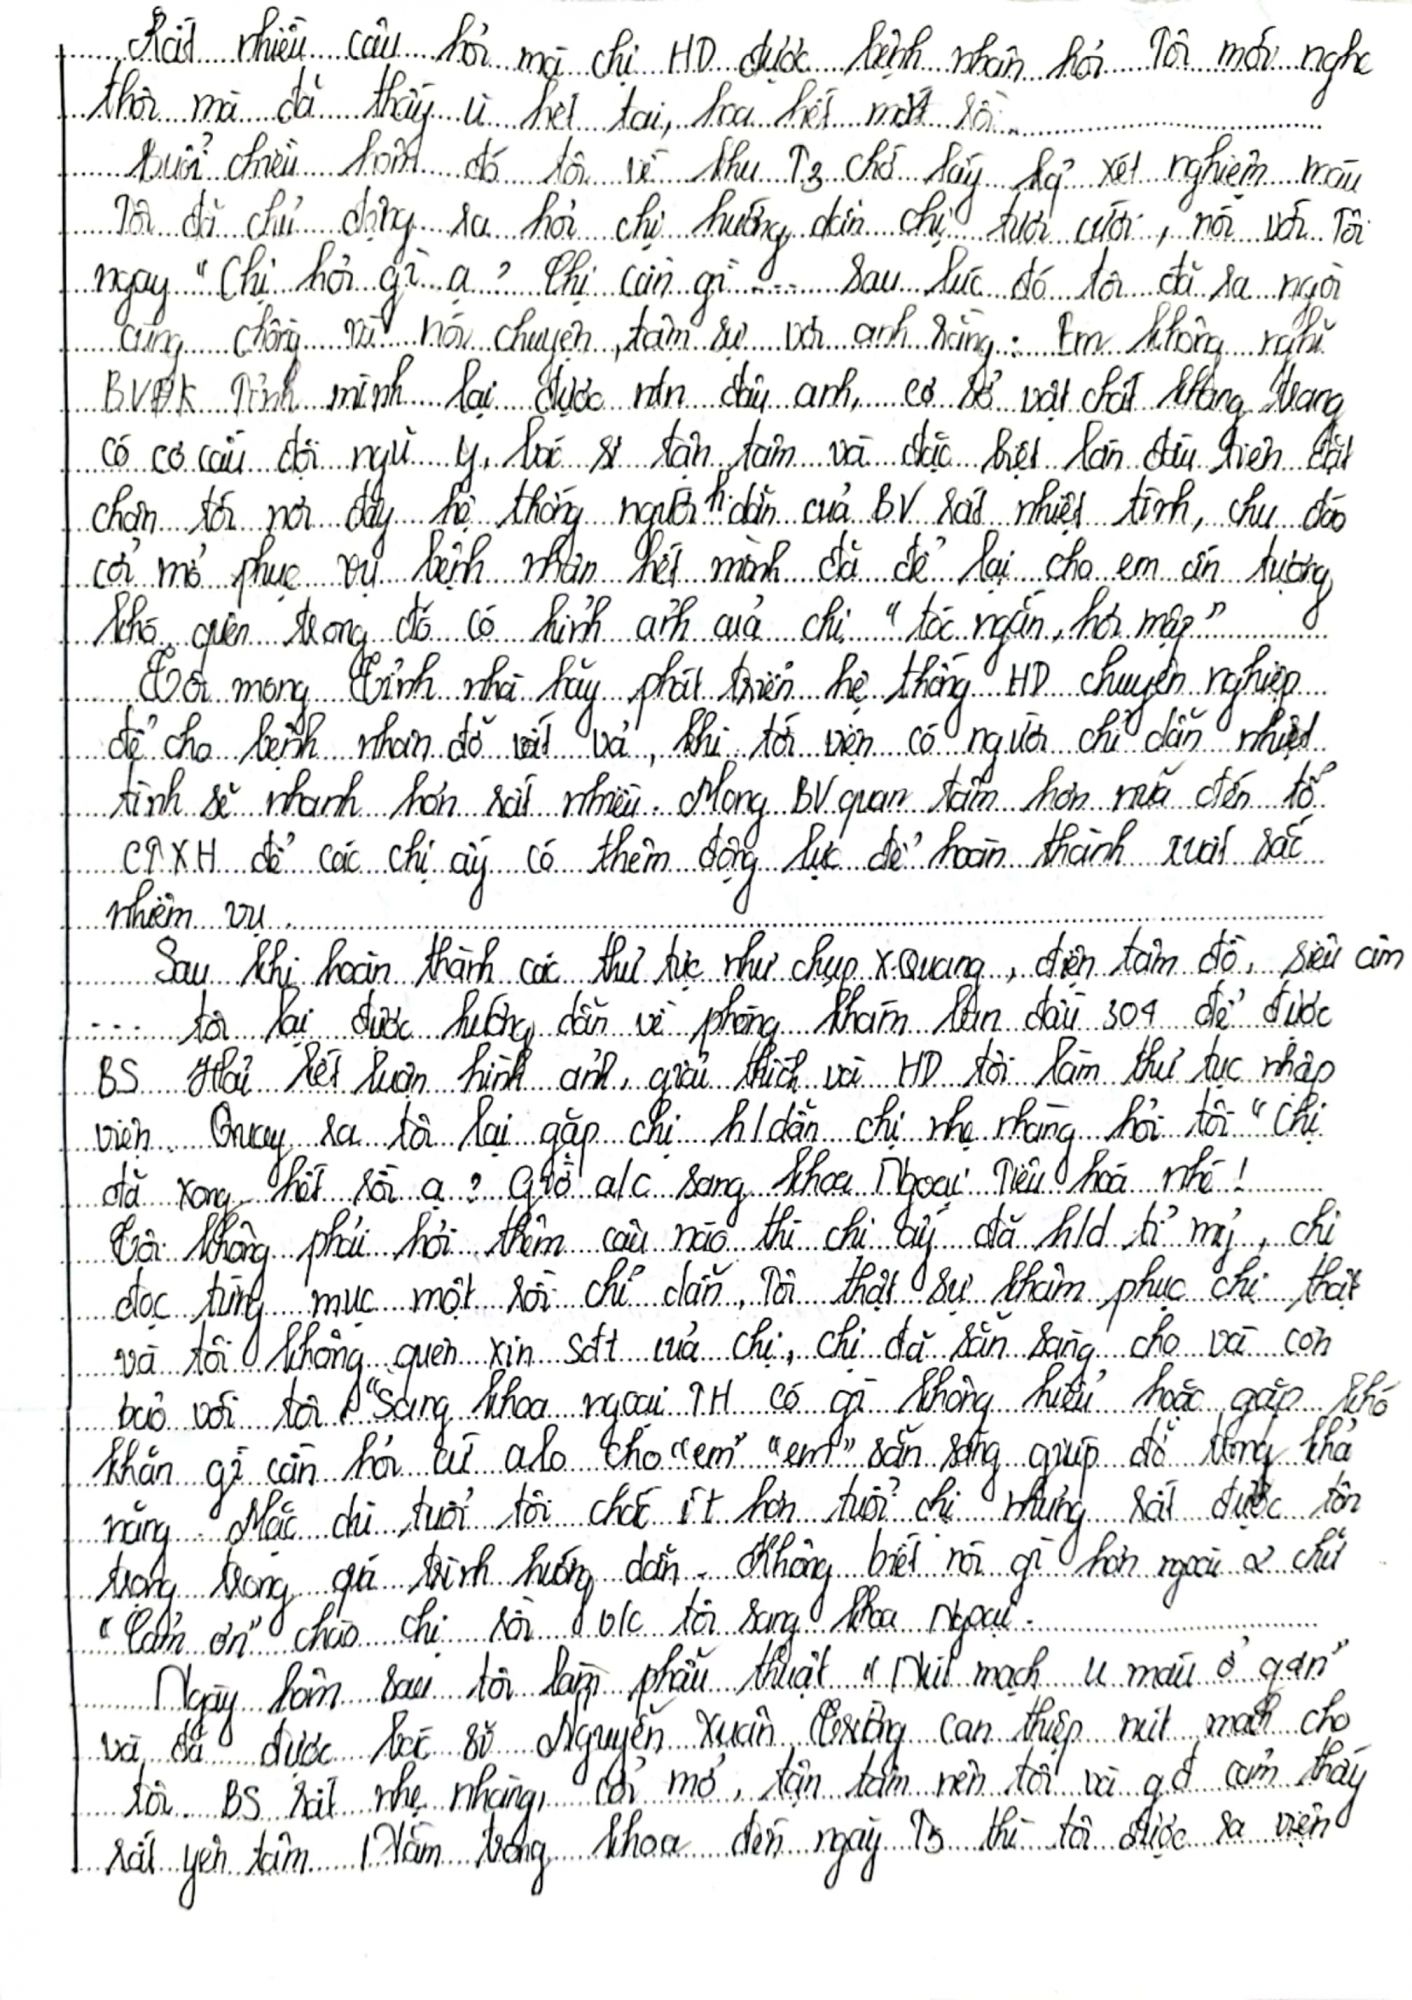 Rất nhiều câu hỏi mà chị HD được bệnh nhân hỏi Tôi mới nghe
thôi mà đã thấy ù hết tai, hoa hết mắt rồi.
Buổi chiều hôm đó tôi về khu T3 chờ lấy kq xét nghiệm máu
Tôi đã chủ động ra hỏi chị hướng dẫn chị tươi cười, nói với Tôi
ngay "Chị hỏi gì ạ? Chị cần gì .... sau lúc đó tôi đã ra ngồi
cùng chồng và nói chuyện, tâm sự với anh rằng: Em không nghĩ
BVĐK Tỉnh mình lại được ntn đâu anh, cơ sở vật chất khang trang
có cơ cấu đội ngũ y, bác sĩ tận tâm và đặc biệt lần đầu tiên đặt
chân tới nơi đây hệ thống người h.dẫn của BV rất nhiệt tình, chu đáo
cởi mở phục vụ bệnh nhân hết mình đã để lại cho em ấn tượng
khó quên trong đó có hình ảnh của chị "tóc ngắn, hơi mập"
Tôi mong Tỉnh nhà hãy phát triển hệ thống HD chuyên nghiệp
để cho bệnh nhân đỡ vất vả, khi tới viện có người chỉ dẫn nhiệt
tình sẽ nhanh hơn rất nhiều. Mong BV quan tâm hơn nữa đến tổ
CTXH để các chị ấy có thêm động lực để hoàn thành xuất sắc
nhiệm vụ.
Sau khi hoàn thành các thủ tục như chụp X.Quang, điện tâm đồ, siêu âm
.... tôi lại được hướng dẫn về phòng khám ban đầu 304 để được
BS Hải kết luận hình ảnh, giải thích và HD tôi làm thủ tục nhập
viện. Quay ra tôi lại gặp chị h/dẫn chị nhẹ nhàng hỏi tôi "Chị
đã xong hết rồi ạ? Giờ a/c sang khoa Ngoại Tiêu hoá nhé!
Tôi không phải hỏi thêm câu nào thì chị ấy đã h/d tỉ mỉ, chị
đọc từng mục một rồi chỉ dẫn, Tôi thật sự khâm phục chị thật
và tôi không quên xin sđt của chị, chị đã sẵn sàng cho và còn
bảo với tôi "Sang khoa ngoại TH có gì không hiểu hoặc gặp khó
khăn gì cần hỏi cứ alo cho "em" "em" sẵn sàng giúp đỡ trong khả
năng. Mặc dù tuổi tôi chắc ít hơn tuổi chị nhưng rất được tôn
trọng trong quá trình hướng dẫn. Không biết nói gì hơn ngoài 2 chữ
"Cảm ơn" chào chị rồi v/c tôi sang khoa Ngoại.
Ngày hôm sau tôi làm phẫu thuật "Nút mạch u máu ở gan"
và đã được bác sĩ Nguyễn Xuân Trường can thiệp nút mạch cho
tôi. BS rất nhẹ nhàng, cởi mở, tận tâm nên tôi và gđ cảm thấy
rất yên tâm. Nằm trong khoa đến ngày T5 thì tôi được ra viện